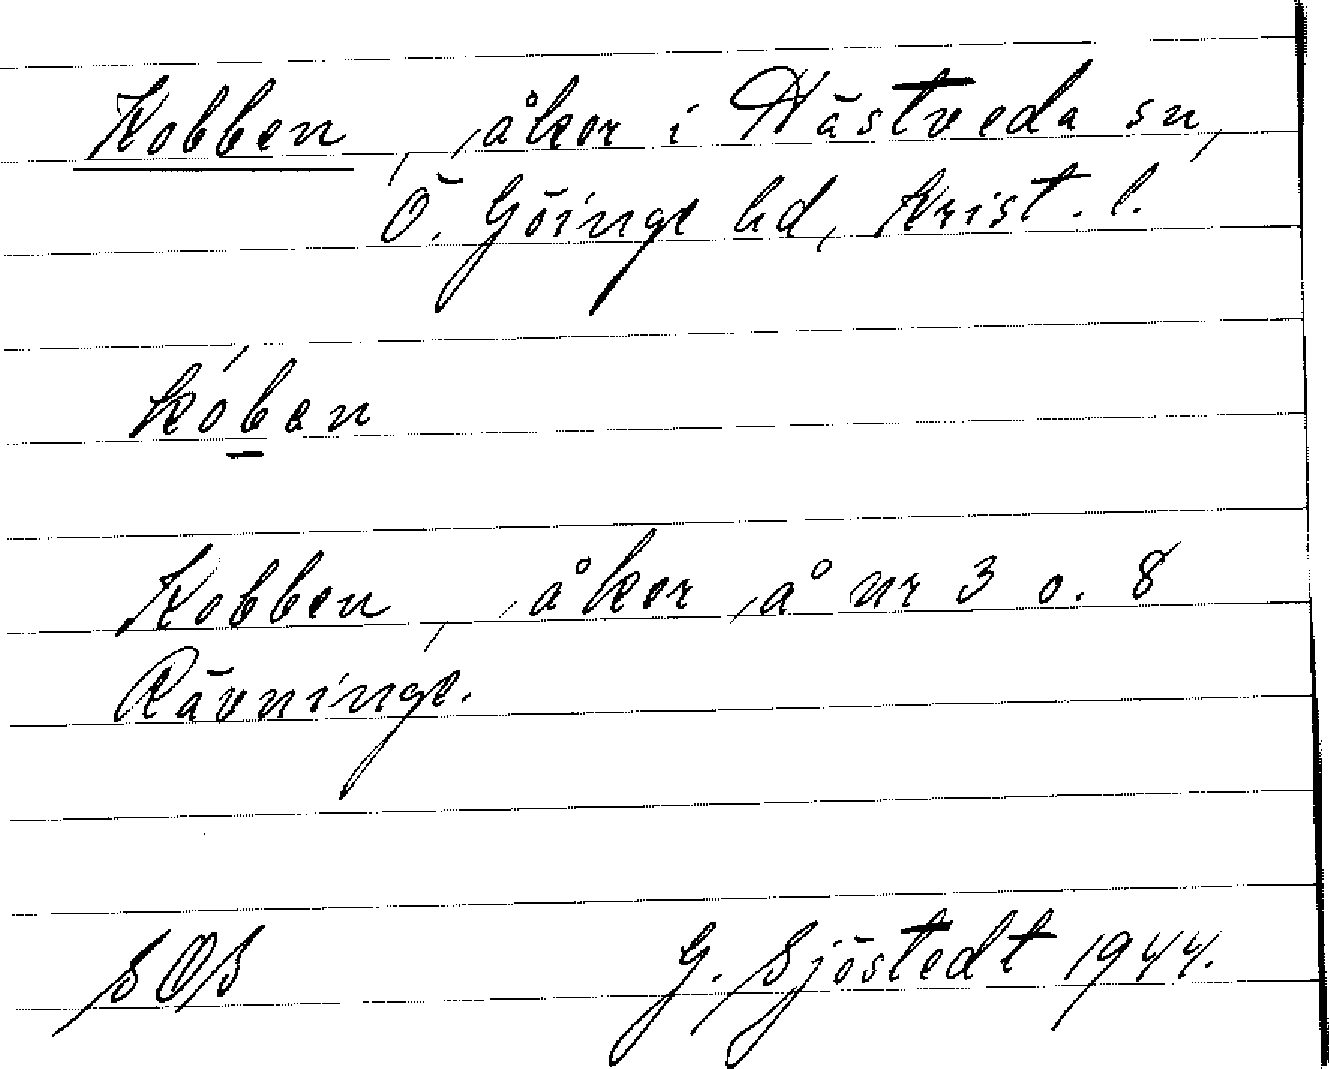 Kobben, åker i Hästveda sn,
Ö. Göinge hd, Krist. l.
kób̲an
Kobben, åker å nr 3 o. 8
Rävninge.
SOS G. Sjöstedt 1944.